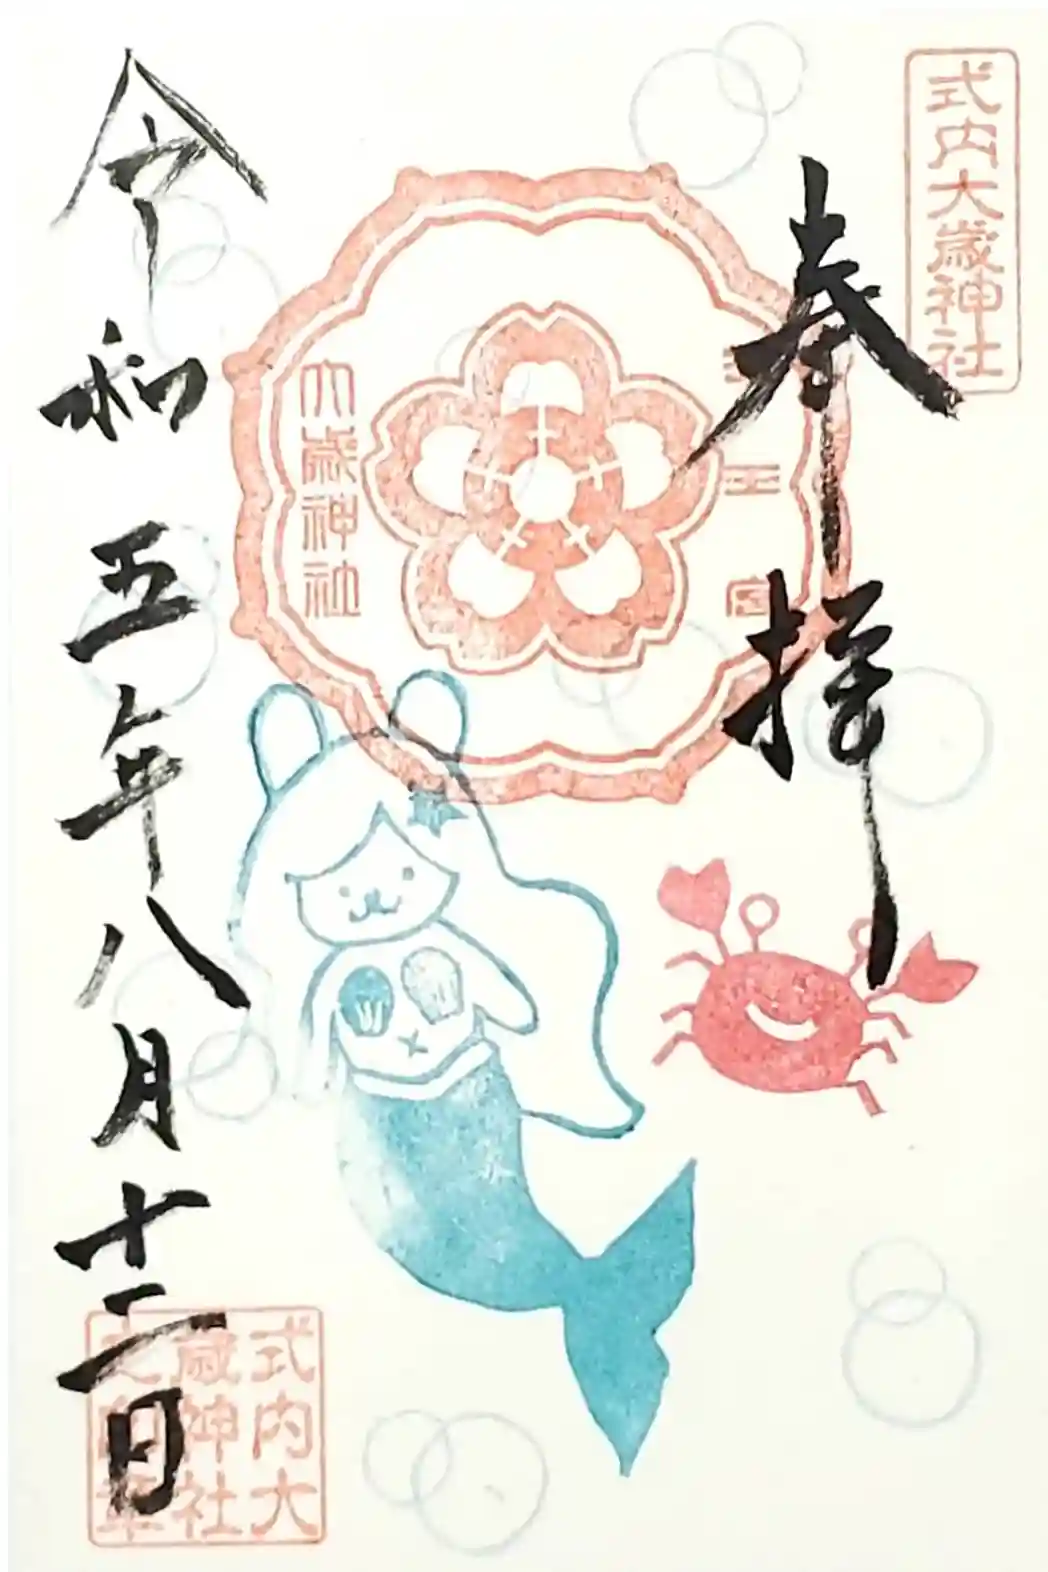 式内大歳神社
奉拝
大歳神社
令和五年八月十二日
式内大
歳神社